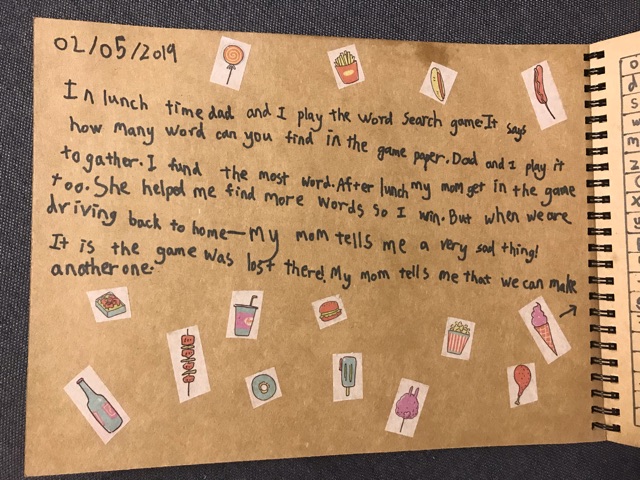 02/05/2019
In lunch time dad and I play the word search game. It says
how many word can you find in the game paper. Dad and I play it
to gather. I fund the most word. After lunch my mom get in the game
too. She helped me find more words so I win. But when we are
driving back to home— My mom tells me a very sad thing!
It is the game was lost there! My mom tells me that we can make
another one.